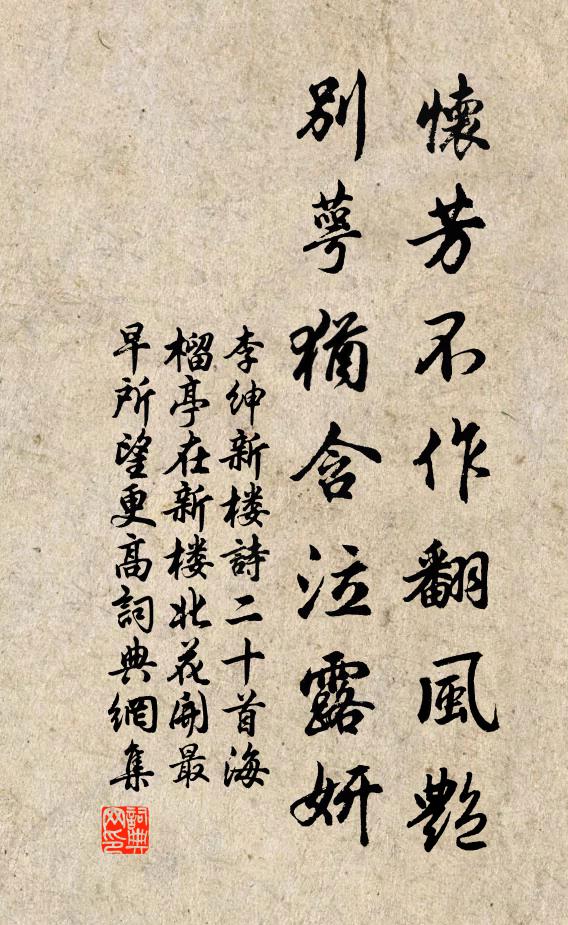 懷芳不作翻風艷
別萼猶含泣露妍
李紳新楼詩二十首海
榴亭在新楼北花開最
早所望更高詞典網集
詞典网印